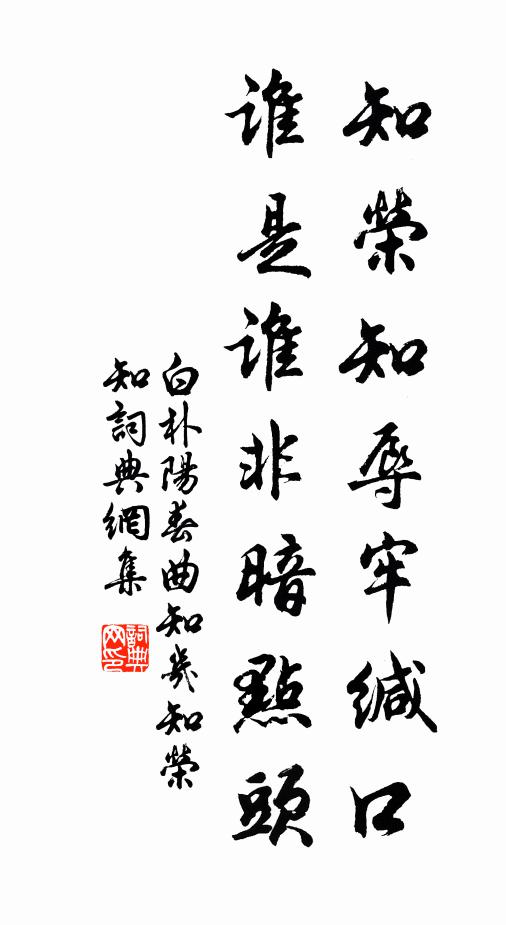 知榮知辱牢緘口
誰是誰非暗點頭
白朴陽春曲知幾知榮
知詞典網集
詞典網印